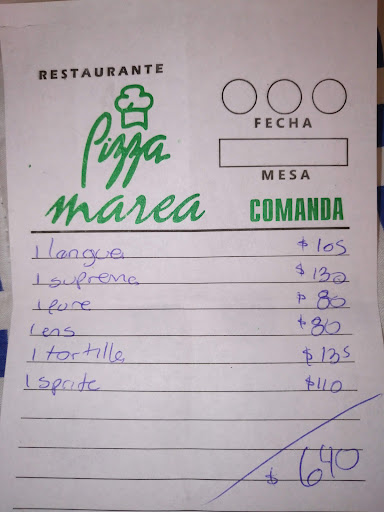 RESTAURANTE
Pizza
marea
FECHA
MESA
COMANDA
1 lengua $ 105
1 suprema $ 130
1 pure $ 80
1 ens $ 80
1 tortilla $ 135
1 sprite $ 110
$ 640